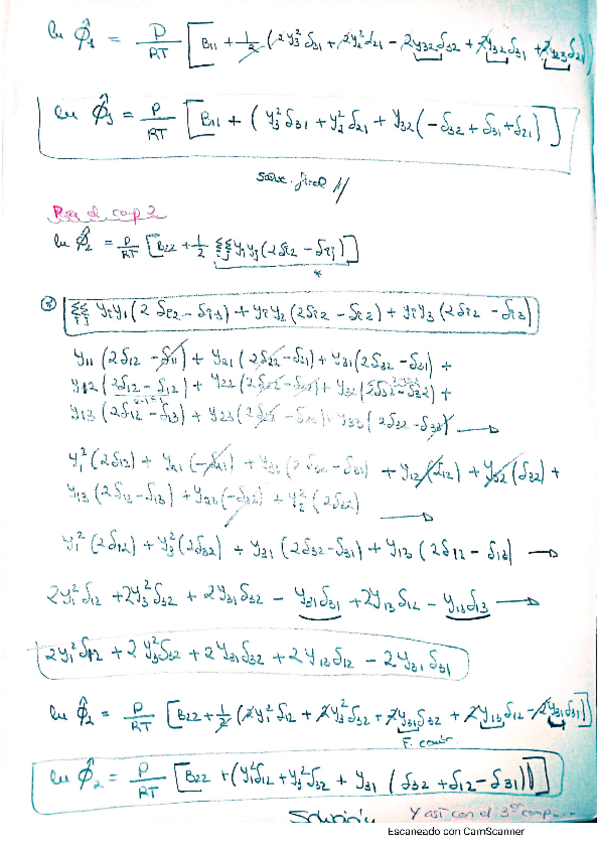 ln Φ̂₁ = P/RT [B₁₁ + 1/2 (2y₃²δ₃₁ + 2y₂²δ₂₁ - 2y₃₂δ₃₂ + 2y₃₂δ₃₁ + 2y₂₃δ₂₁)]
ln Φ̂₁ = P/RT [B₁₁ + (y₃²δ₃₁ + y₂²δ₂₁ + y₃₂(-δ₃₂ + δ₃₁ + δ₂₁))]
final //
Para el comp 2
ln Φ̂₂ = P/RT [B₂₂ + 1/2 ΣΣ yᵢyⱼ(2δᵢ₂ - δᵢⱼ)]
*
* ΣΣ yᵢy₁(2δᵢ₂ - δᵢ₁) + yᵢy₂(2δᵢ₂ - δᵢ₂) + yᵢy₃(2δᵢ₂ - δᵢ₃)
y₁₁(2δ₁₂ - δ₁₁) + y₂₁(2δ₂₂ - δ₂₁) + y₃₁(2δ₃₂ - δ₃₁) +
y₁₂(2δ₁₂ - δ₁₂) + y₂₂(2δ₂₂ - δ₂₂) + y₃₂(2δ₃₂ - δ₃₂) +
y₁₃(2δ₁₂ - δ₁₃) + y₂₃(2δ₂₂ - δ₂₃) + y₃₃(2δ₃₂ - δ₃₃) →
y₁²(2δ₁₂) + y₂₁(-δ₂₁) + y₃₁(2δ₃₂ - δ₃₁) + y₁₂(δ₁₂) + y₃₂(δ₃₂) +
y₁₃(2δ₁₂ - δ₁₃) + y₂₃(-δ₃₂) + y₃²(2δ₃₂) →
y₁²(2δ₁₂) + y₃²(2δ₃₂) + y₃₁(2δ₃₂ - δ₃₁) + y₁₃(2δ₁₂ - δ₁₃) →
2y₁²δ₁₂ + 2y₃²δ₃₂ + 2y₃₁δ₃₂ - y₃₁δ₃₁ + 2y₁₃δ₁₂ - y₁₃δ₁₃ →
2y₁²δ₁₂ + 2y₃²δ₃₂ + 2y₃₁δ₃₂ + 2y₁₃δ₁₂ - 2y₃₁δ₃₁
ln Φ̂₂ = P/RT [B₂₂ + 1/2 (2y₁²δ₁₂ + 2y₃²δ₃₂ + 2y₃₁δ₃₂ + 2y₁₃δ₁₂ - 2y₃₁δ₃₁)]
F. comú
ln Φ̂₂ = P/RT [B₂₂ + (y₁²δ₁₂ + y₃²δ₃₂ + y₃₁(δ₃₂ + δ₁₂ - δ₃₁))]
Solución Y así con el 3er comp....
Escaneado con CamScanner